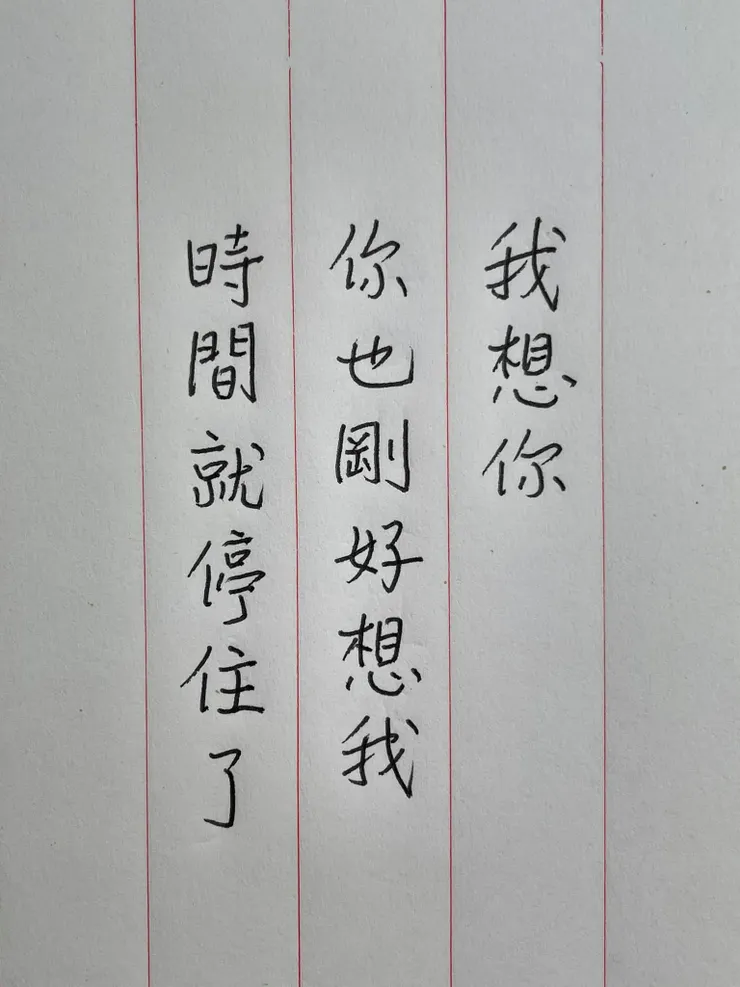 我想你
你也剛好想我
時間就停住了